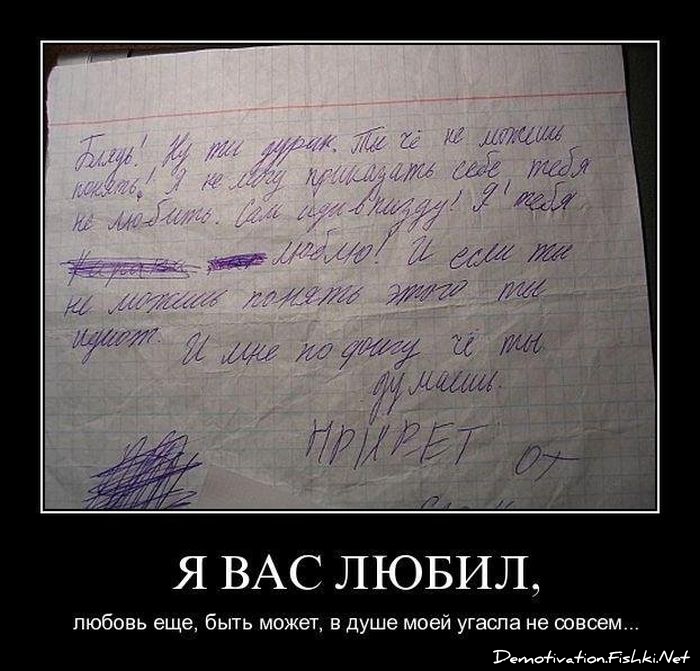 Блядь! Ну ты дурик. Ты чё не можешь
понять! Я не могу приказать себе тебя
не любить. Сам иди в пизду! Я тебя
люблю! И если ты
не можешь понять этого ты
идиот. И мне по фигу чё ты
думаешь.
ПРИВЕТ от
Я ВАС ЛЮБИЛ,
любовь еще, быть может, в душе моей угасла не совсем...
Demotivation.Fishki.Net